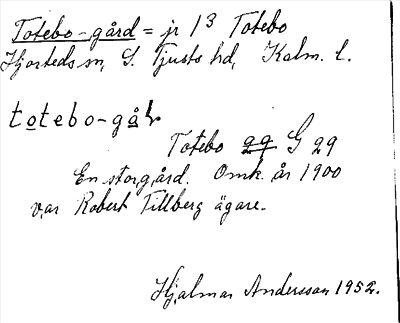 Totebo-gård = jr 1³ Totebo
Hjorteds sn, S. Tjusts hd, Kalm. l.
totebo-gå
Totebo gg G 29
En storgård. Omk. år 1900
var Robert Tillberg ägare.
Hjalmar Andersson 1952.